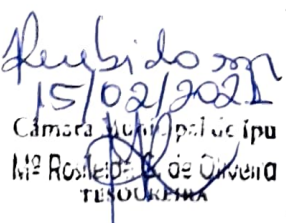 Recebido em
15/02/2021
Câmara Municipal de Ipu
Mª Rosileida S. de Oliveira
TESOUREIRA